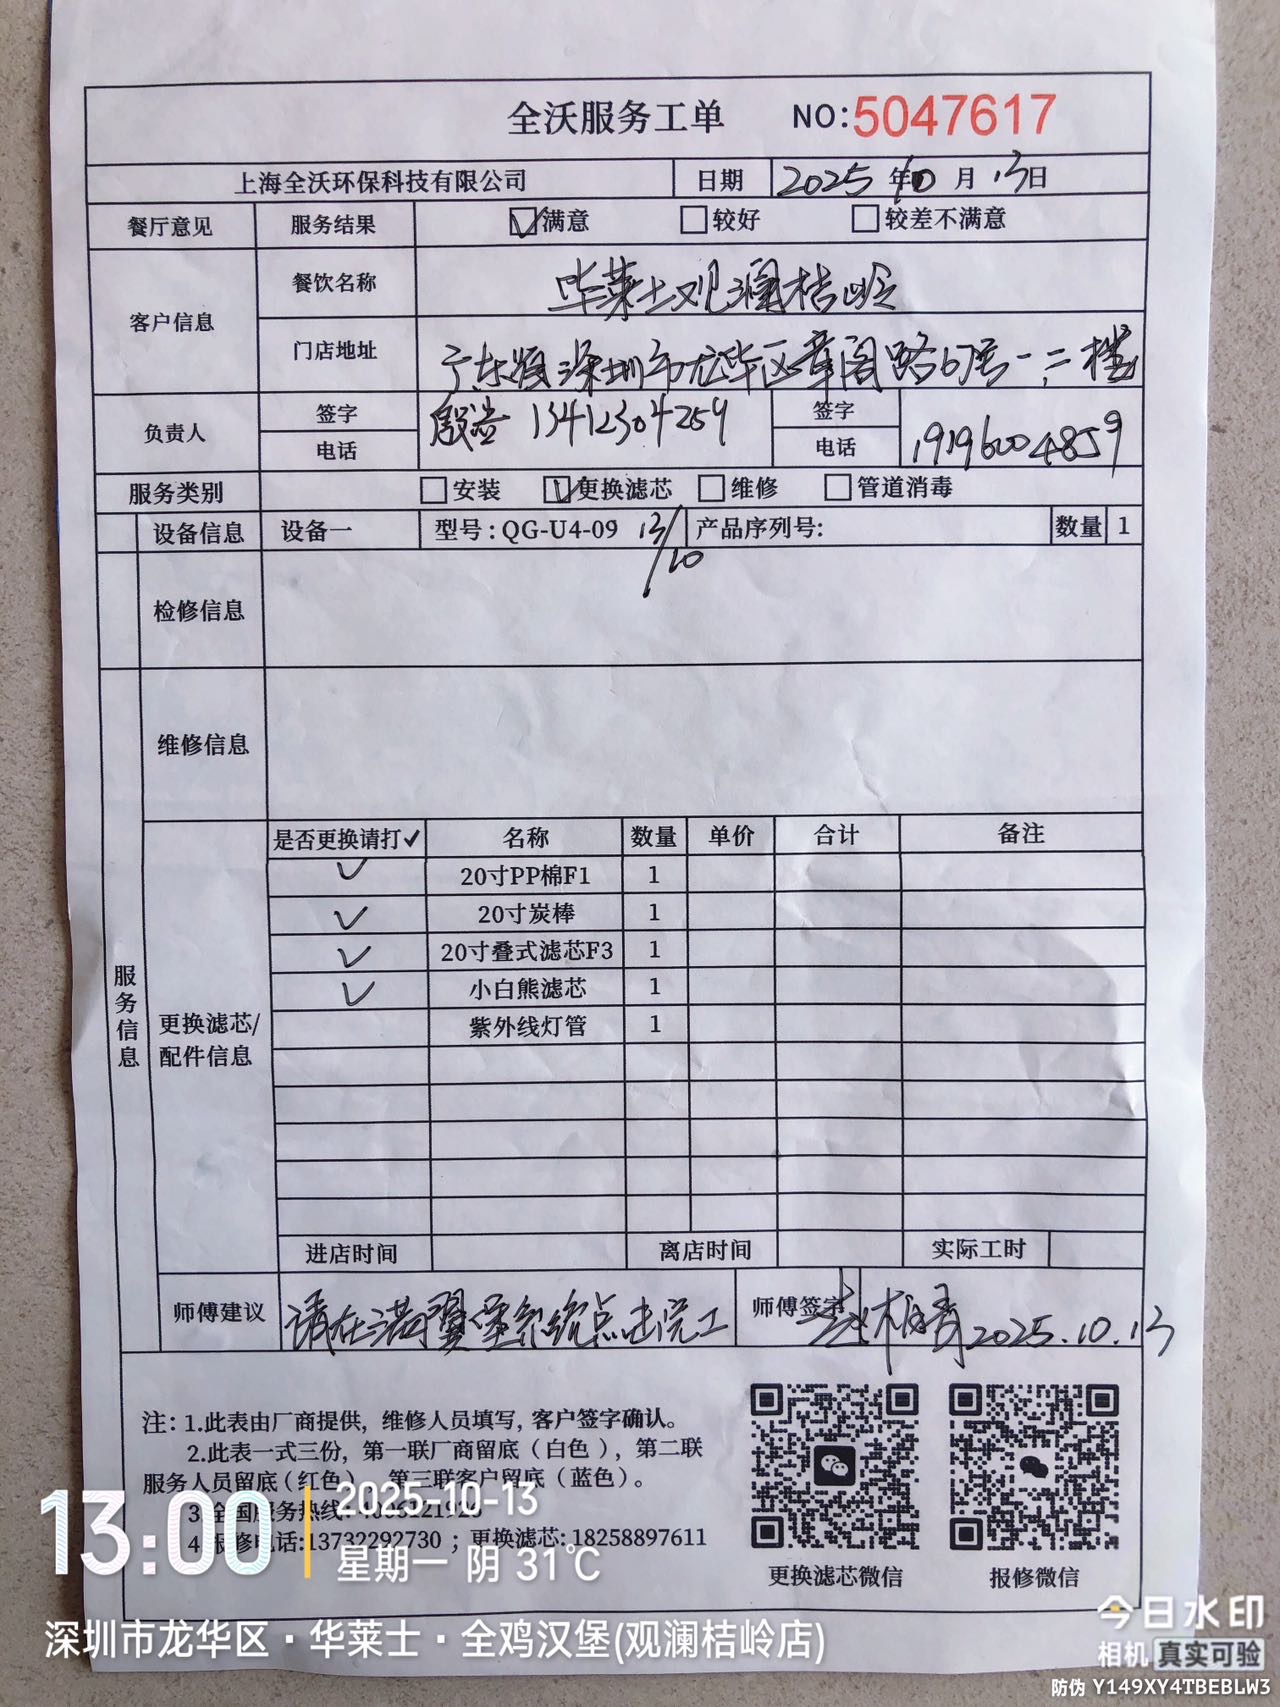 全沃服务工单 NO:5047617
上海全沃环保科技有限公司 日期 2025年10月13日
餐厅意见 服务结果 ☑满意 □较好 □较差不满意
客户信息 餐饮名称 华莱士观澜桔岭
门店地址 广东颂深圳市龙华区章阁路67号一,二楼
负责人 签字 殷 13412304259 签字
电话 电话 19196004859
服务类别 □安装 ☑更换滤芯 □维修 □管道消毒
设备信息 设备一 型号:QG-U4-09 13/10 产品序列号: 数量 1
检修信息
维修信息
服务信息
更换滤芯/
配件信息
是否更换请打✓ 名称 数量 单价 合计 备注
✓ 20寸PP棉F1 1
✓ 20寸炭棒 1
✓ 20寸叠式滤芯F3 1
✓ 小白熊滤芯 1
紫外线灯管 1
进店时间 离店时间 实际工时
师傅建议 请在满翼堡系统点击完工 师傅签字 赵相青 2025.10.13
注: 1.此表由厂商提供, 维修人员填写, 客户签字确认。
2.此表一式三份, 第一联厂商留底(白色), 第二联
服务人员留底(红色), 第三联客户留底(蓝色)。
3.全国服务热线:
4.报修电话:13732292730 ; 更换滤芯: 18258897611
更换滤芯微信 报修微信
13:00 2025-10-13
星期一 阴 31℃
深圳市龙华区·华莱士·全鸡汉堡(观澜桔岭店)
今日水印
相机 真实可验
防伪 Y149XY4TBEBLW3